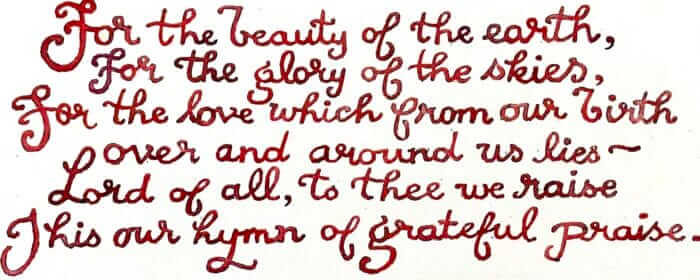 For the beauty of the earth,
For the glory of the skies,
For the love which from our birth
over and around us lies~
Lord of all, to thee we raise
This our hymn of grateful praise.